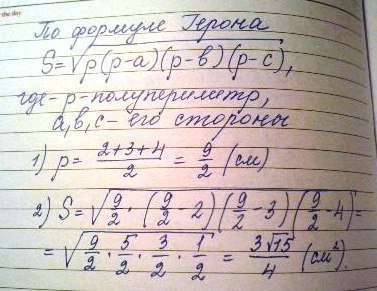 the day
По формуле Герона
S=√p(p-a)(p-в)(p-c),
где-p-полупериметр,
a,в,c-его стороны
1) p = (2+3+4)/2 = 9/2 (см)
2) S = √(9/2 · (9/2 - 2)(9/2 - 3)(9/2 - 4)) =
= √(9/2 · 5/2 · 3/2 · 1/2) = 3√15/4 (см²).